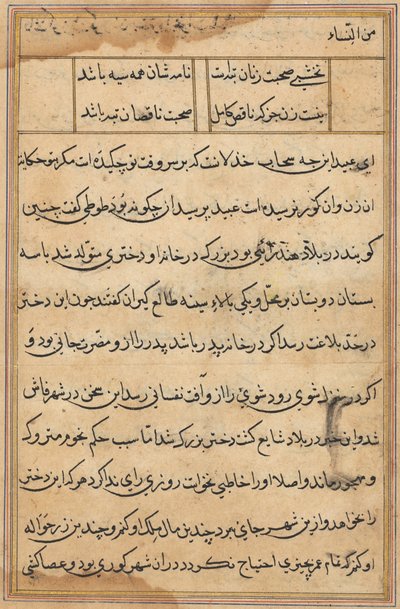 من النساء
نخشبی صحبت زنان تبهست نامه شان همه سیه باشد
نیست زن جز که ناقص کامل صحبت ناقصان تبه باشد
ای عبید این چه سحاب خذلانست که بر سر وقت تو چکیده است مگر تو حکایت
ان زن وان کور نرسیده است عبید پرسید از چگونه بود طوطی گفت چنین
کویند در بلاد هند رائی بود بزرک در خانه او دختری متولد شد با سه
بستان دو بستان بر محل و یکی بالای سینه طالع کیران کفتند چون این دختر
در حد بلاغت رسد اکر در خانه پدر باشد پدر را از و مضرت جانی بود و
اکر در شوی رود شوی را از و آفت نفسانی رسد این سخن در شهر فاش
شد و این خبر در بلاد شایع کشت دختر بزرک شد اما سبب حکم نجوم متروک
و مهجور ماند و اصلا او را خاطبی نخواست روزی رای ندا کرد هر که این دختر
را بخواهد و از این شهر جای برد چندین مال ملک او کنم و چندین زر حواله
او کنم که تمام عمر بچیزی احتیاج نکردد در ان شهر کوری بود و عصا کشی